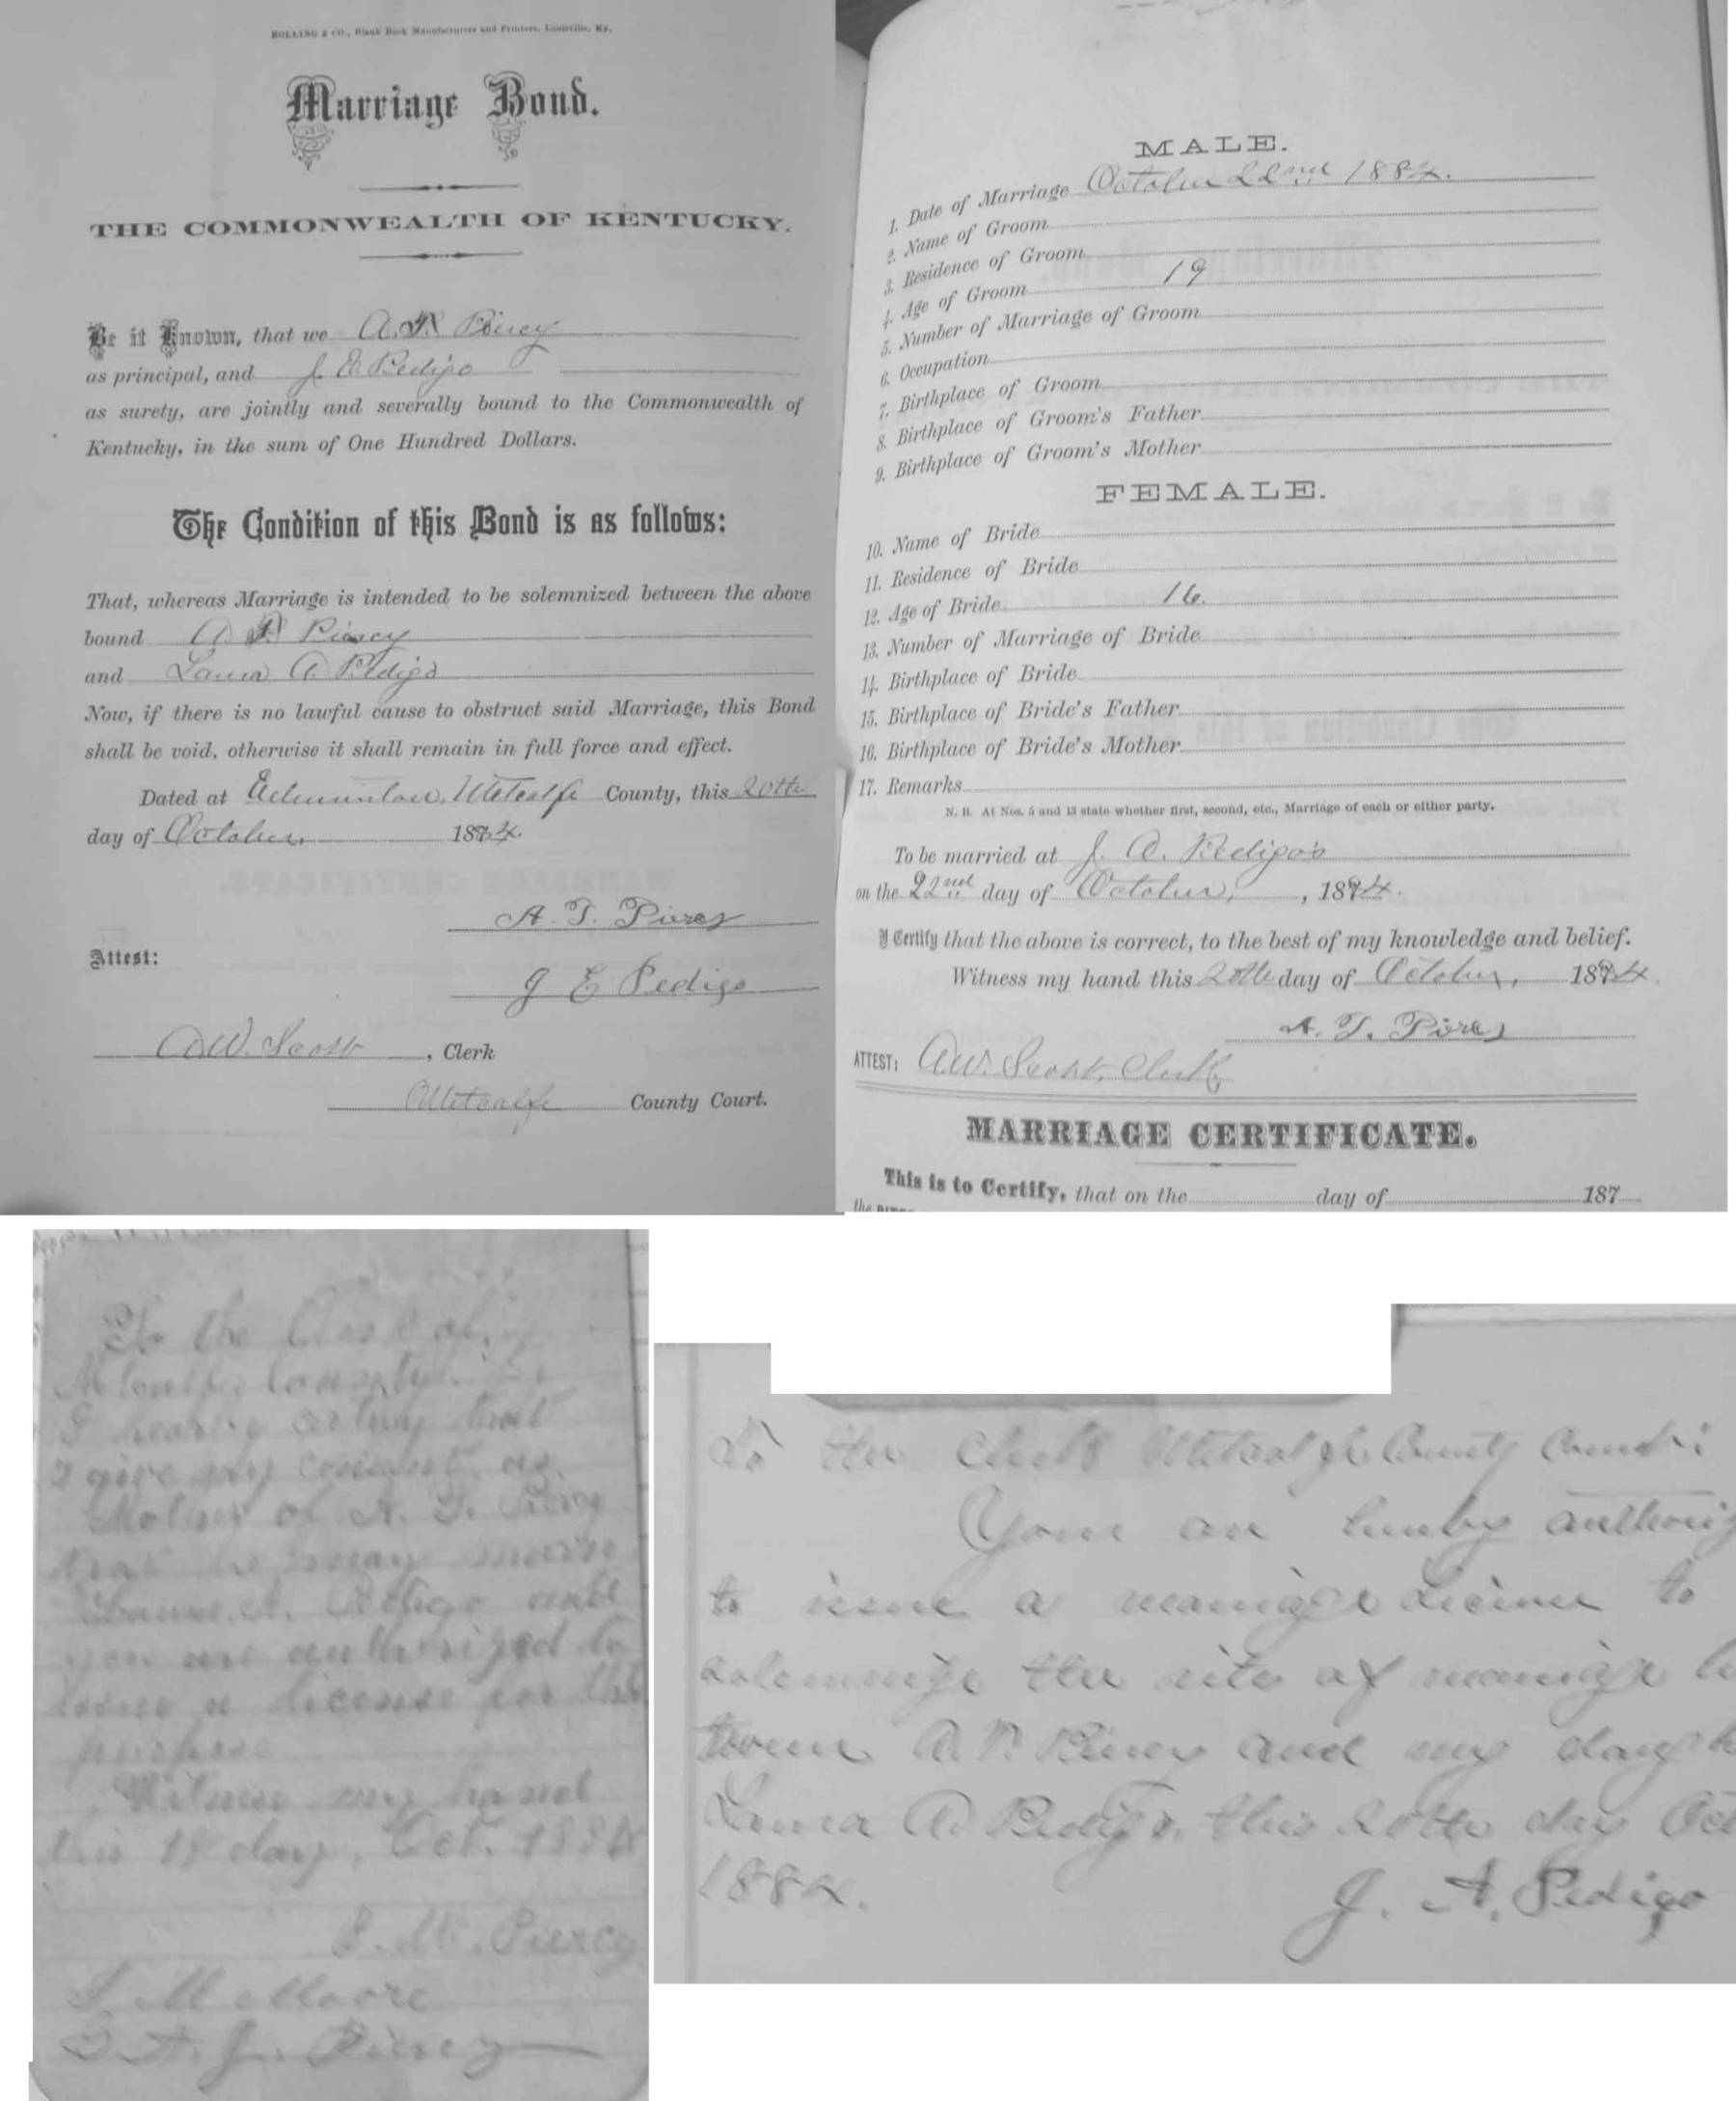 BOLLING & CO., Blank Book Manufacturers and Printers, Louisville, Ky.
Marriage Bond.
THE COMMONWEALTH OF KENTUCKY.
Be it Known, that we A. T. Piercy
as principal, and J. E. Pedigo
as surety, are jointly and severally bound to the Commonwealth of
Kentucky, in the sum of One Hundred Dollars.
The Condition of this Bond is as follows:
That, whereas Marriage is intended to be solemnized between the above
bound A. T. Piercy
and Laura A. Pedigo
Now, if there is no lawful cause to obstruct said Marriage, this Bond
shall be void, otherwise it shall remain in full force and effect.
Dated at Edmunton, Metcalfe County, this 20th
day of October, 1884.
A. T. Piercy
Attest:
J E Pedigo
A W. Scott, Clerk
Metcalfe County Court.
MALE.
1. Date of Marriage October 22nd 1884.
2. Name of Groom
3. Residence of Groom
4. Age of Groom 19
5. Number of Marriage of Groom
6. Occupation
7. Birthplace of Groom
8. Birthplace of Groom's Father
9. Birthplace of Groom's Mother
FEMALE.
10. Name of Bride
11. Residence of Bride
12. Age of Bride 16.
13. Number of Marriage of Bride
14. Birthplace of Bride
15. Birthplace of Bride's Father
16. Birthplace of Bride's Mother
17. Remarks
N. B. At Nos. 5 and 13 state whether first, second, etc., Marriage of each or either party.
To be married at J. A. Pedigo's
on the 22nd day of October, , 1884.
I Certify that the above is correct, to the best of my knowledge and belief.
Witness my hand this 20th day of October, 1884.
A. T. Piercy
ATTEST: A W. Scott, Clerk
MARRIAGE CERTIFICATE.
This is to Certify, that on the day of 187
To the Clerk of
Metcalfe County.
I hearby certify that
I give my consent as
Mother of A. T. Piercy
that he may marry
Laura A. Pedigo and
you are authorized to
issue a license for that
purpose
Witness my hand
this 18 day, Oct. 1884
S. M. Piercy
S. M Moore
G. A. J. Piercy
To the Clerk Metcalfe County Court:
Your are hereby authoriz
to issue a marriage License to
solemnize the rite of marriage be
tween A. T. Piercy and my daugh
Laura A Pedigo. this 20th day Oct
1884.
J. A. Pedigo